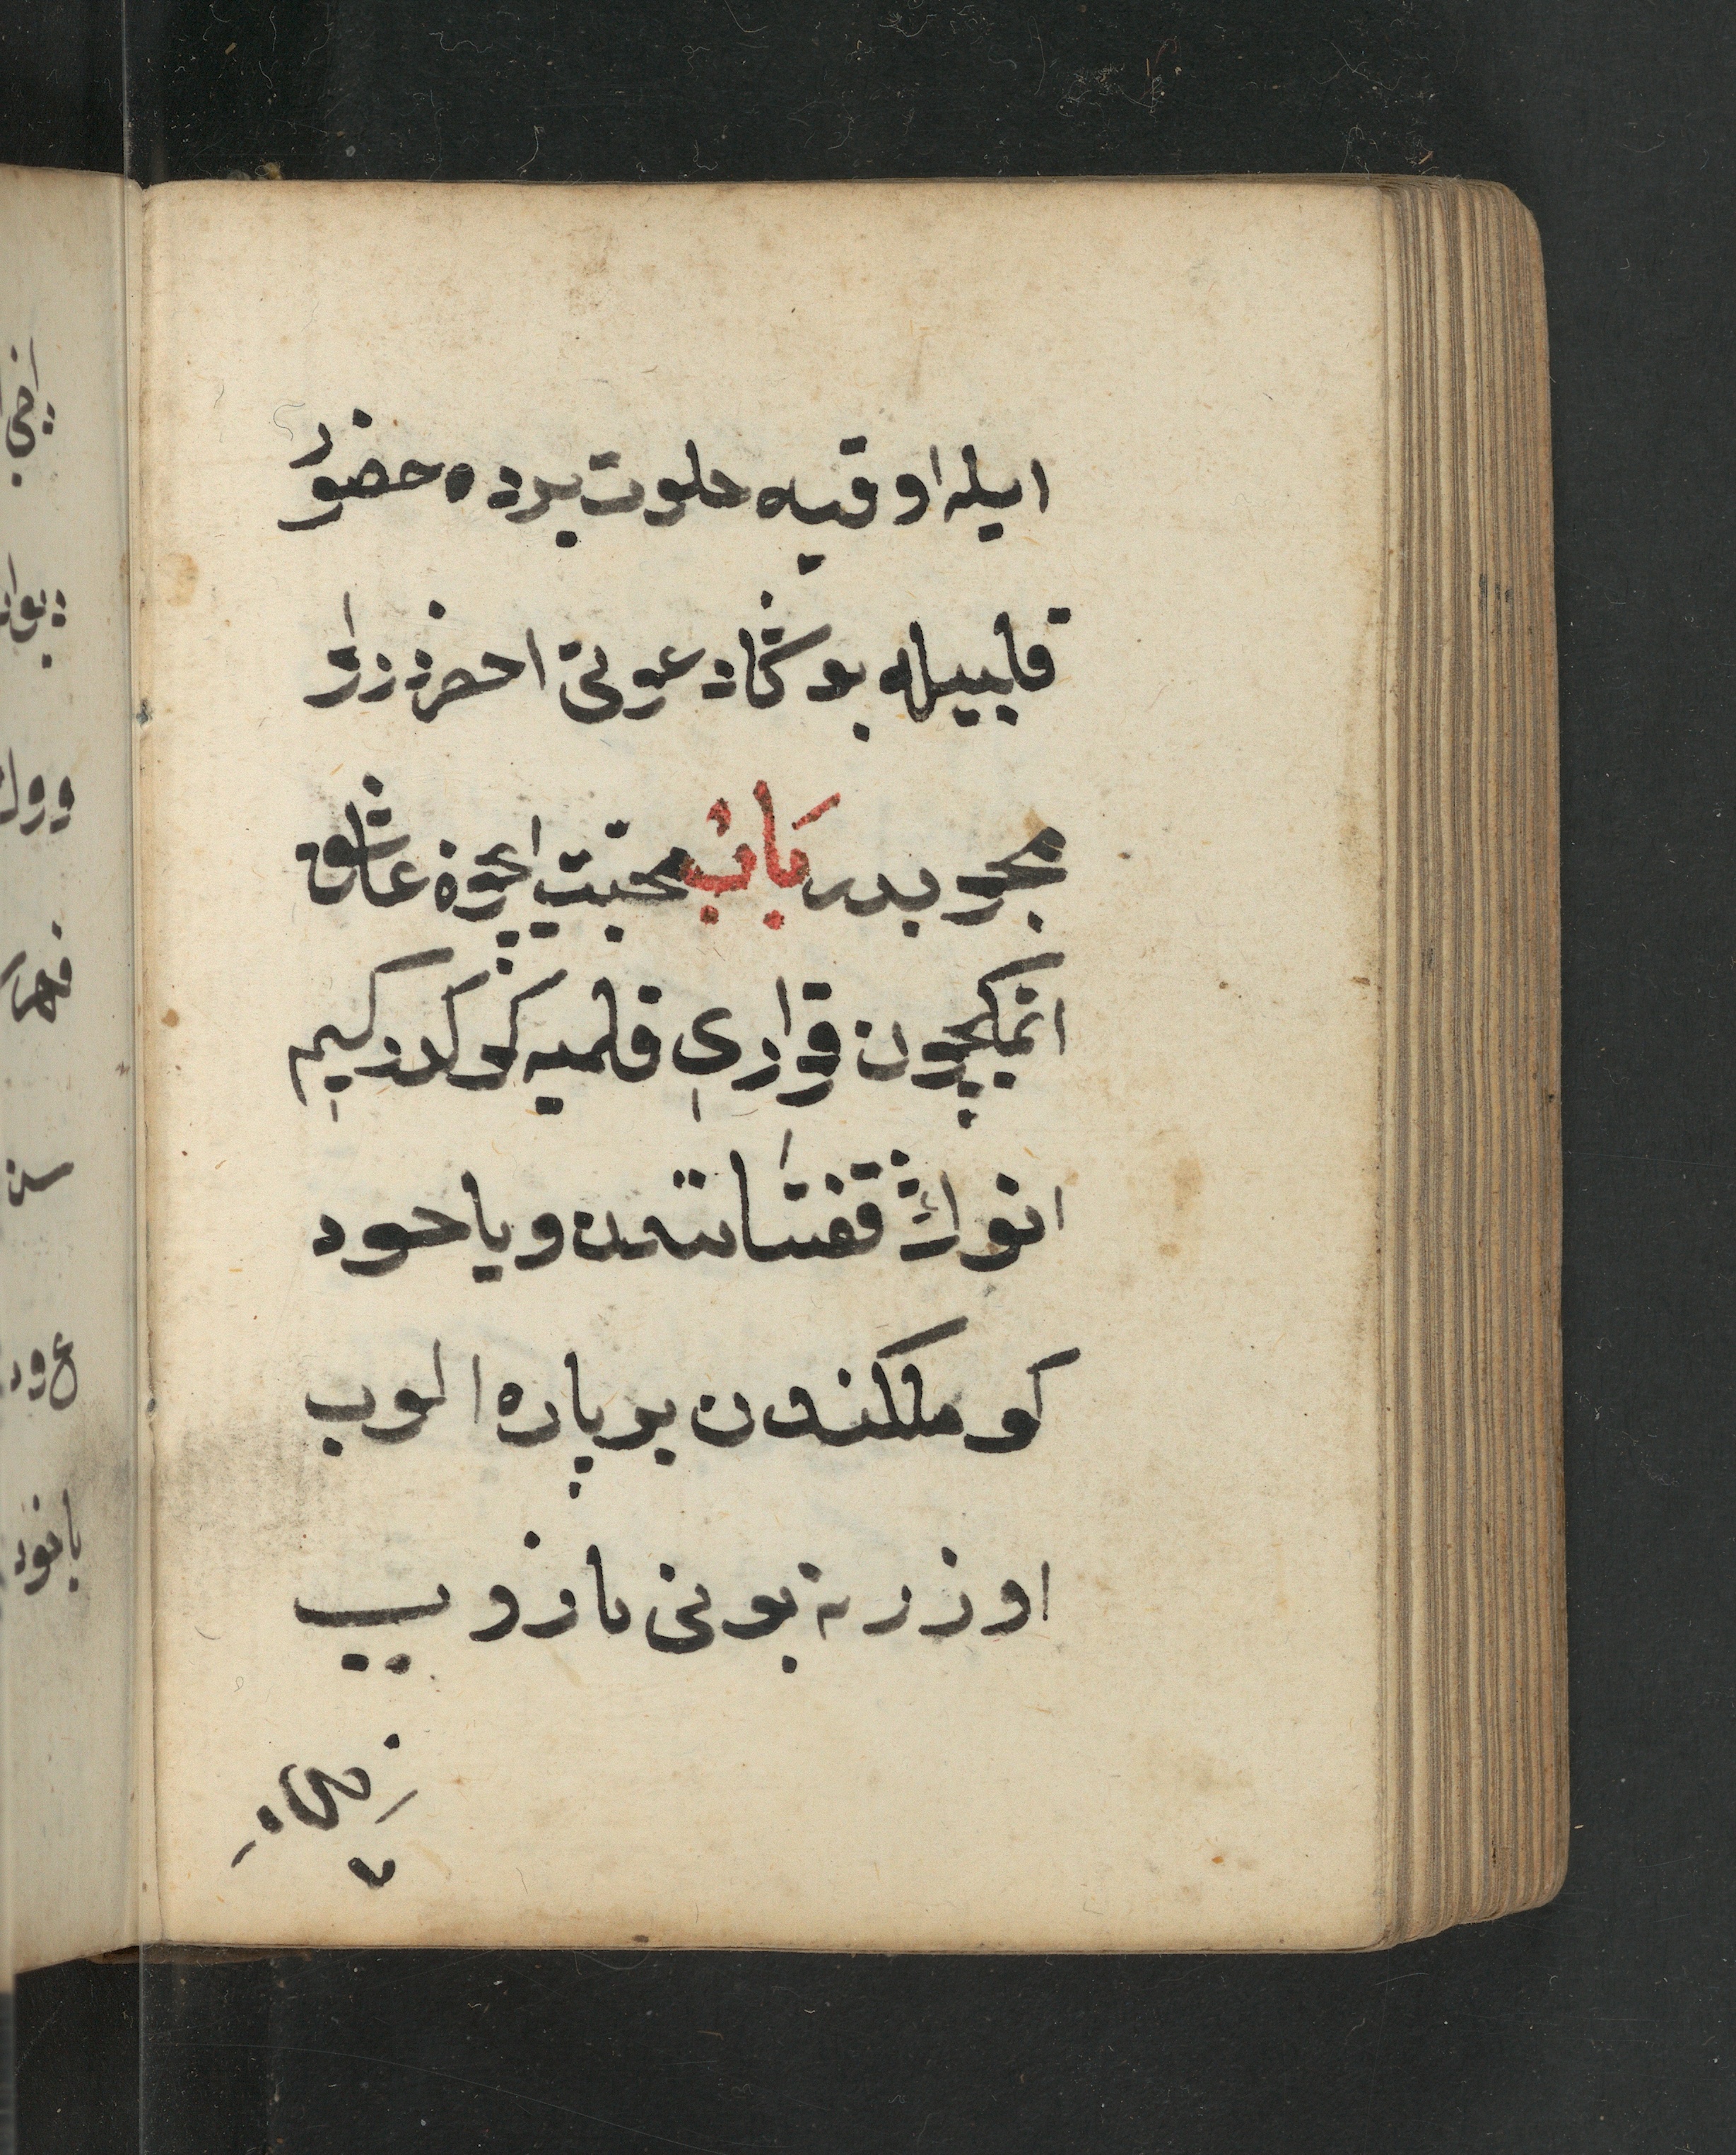 ایله اوقیه خلوت یرده حضور
قلبیله بو شاد عونی احضر زرا
مجربدر بَابْ محبت ایچون عاشق
اتمکچون قواری قلمیه کوکلدر کیم
انوڭ قفتانندن ویا خود
کوملکندن بر پاره الوب
اوزرنه بونی یازوب